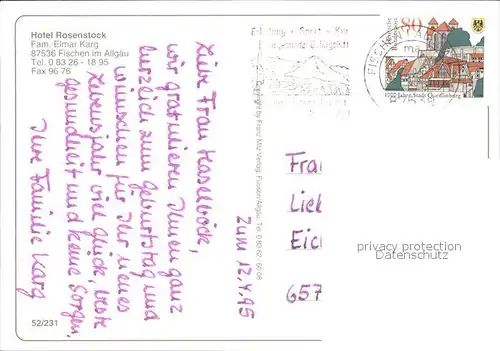 Hotel Rosenstock
Fam. Elmar Karg
87538 Fischen im Allgäu
Tel. 0 83 26 - 18 95
Fax 96 76
Liebe Frau Haselböck,
wir gratulieren Ihnen ganz
herzlich zum Geburtstag und
wünschen für Ihr neues
Lebensjahr viel Glück, beste
Gesundheit und keine Sorgen.
Ihre Familie Karg
zum 12.4.95
Copyright by Franz Milz Verlag, Füssen/Allgäu, Tel. 0 83 62 / 60 08
Erholung + Sport + Kur
FISCHEN
80
1000 Jahre Stadt Quedlinburg
Fra
Lie
Eic
657
privacy protection
Datenschutz
52/231